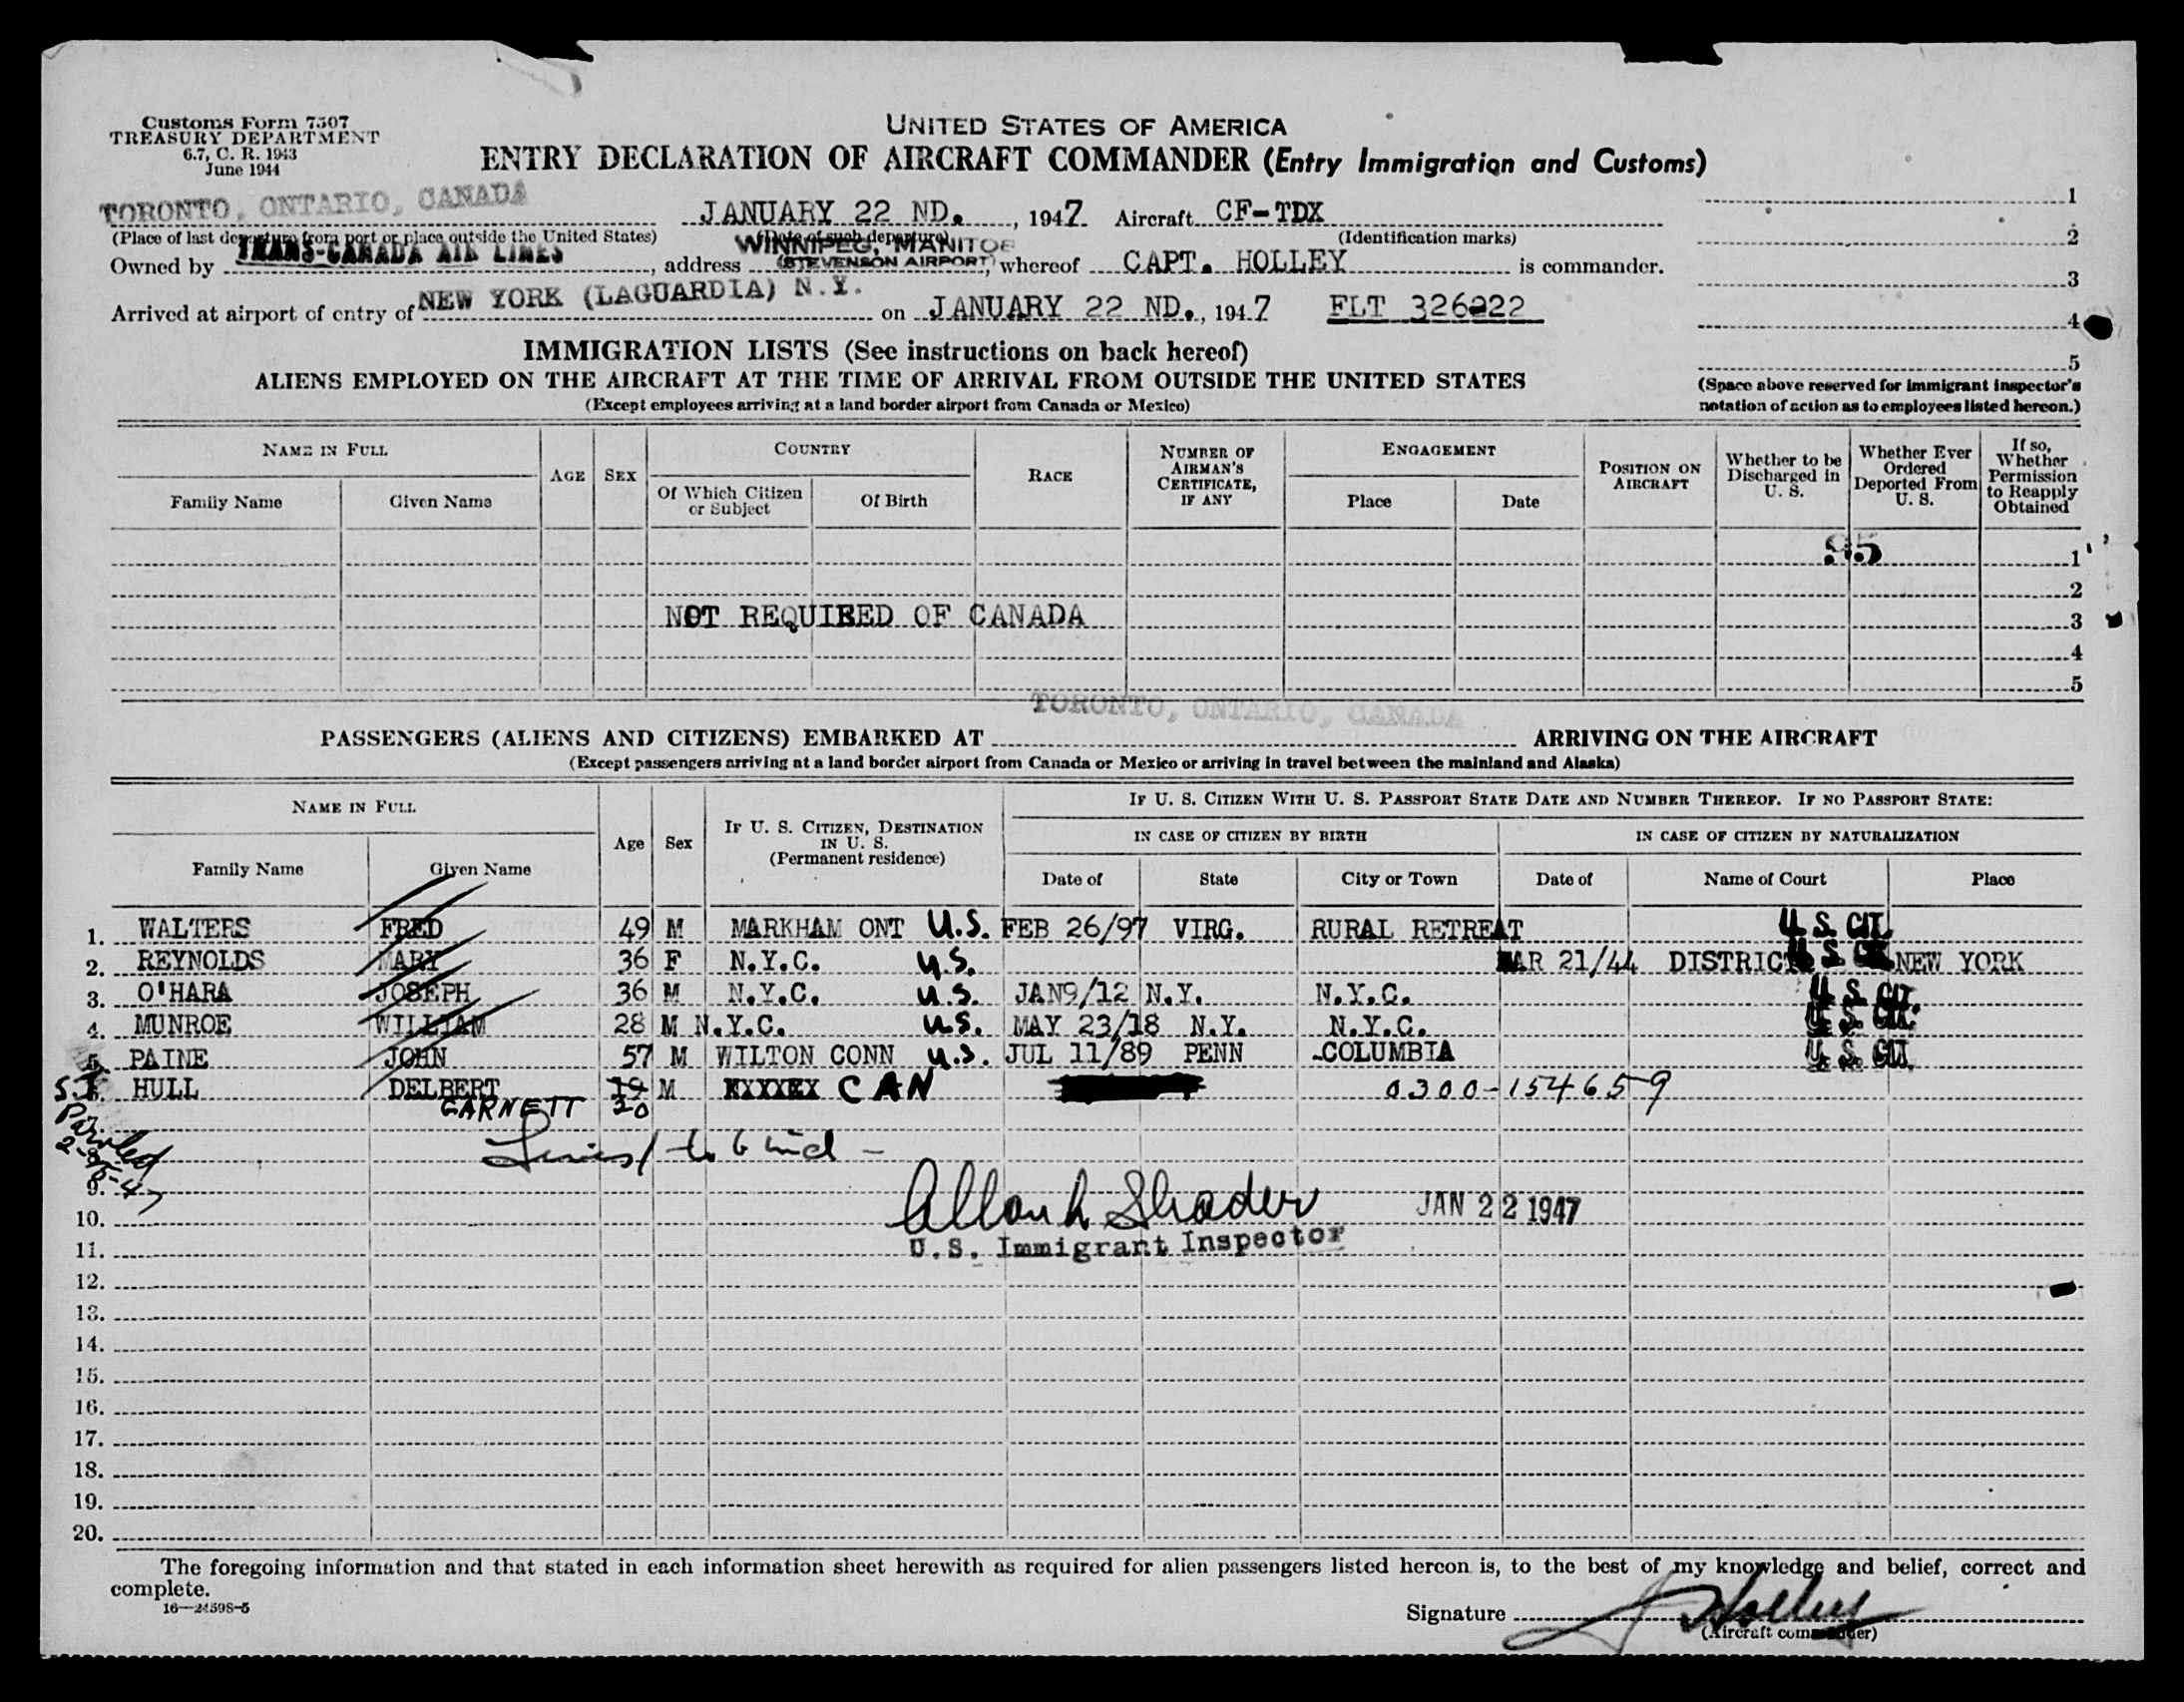 Customs Form 7507
TREASURY DEPARTMENT
6.7, C. R. 1943
June 1944
UNITED STATES OF AMERICA
ENTRY DECLARATION OF AIRCRAFT COMMANDER (Entry Immigration and Customs)
TORONTO, ONTARIO, CANADA JANUARY 22 ND., 1947 Aircraft CF-TDX
(Place of last departure from port or place outside the United States) (Date of such departure) (Identification marks)
Owned by TRANS-CANADA AIR LINES, address WINNIPEG, MANITOB (STEVENSON AIRPORT), whereof CAPT. HOLLEY is commander.
Arrived at airport of entry of NEW YORK (LAGUARDIA) N.Y. on JANUARY 22 ND., 1947 FLT 326222
1
2
3
4
5
(Space above reserved for immigrant inspector's
notation of action as to employees listed hereon.)
IMMIGRATION LISTS (See instructions on back hereof)
ALIENS EMPLOYED ON THE AIRCRAFT AT THE TIME OF ARRIVAL FROM OUTSIDE THE UNITED STATES
(Except employees arriving at a land border airport from Canada or Mexico)
NAME IN FULL
Family Name Given Name
AGE SEX
COUNTRY
Of Which Citizen or Subject
Of Birth
RACE
NUMBER OF AIRMAN'S CERTIFICATE, IF ANY
ENGAGEMENT
Place Date
POSITION ON AIRCRAFT
Whether to be Discharged in U. S.
Whether Ever Ordered Deported From U. S.
If so, Whether Permission to Reapply Obtained
95 1
2
NOT REQUIRED OF CANADA 3
4
5
TORONTO, ONTARIO, CANADA
PASSENGERS (ALIENS AND CITIZENS) EMBARKED AT ARRIVING ON THE AIRCRAFT
(Except passengers arriving at a land border airport from Canada or Mexico or arriving in travel between the mainland and Alaska)
NAME IN FULL
Family Name Given Name
Age Sex
IF U. S. CITIZEN, DESTINATION IN U. S.
(Permanent residence)
IF U. S. CITIZEN WITH U. S. PASSPORT STATE DATE AND NUMBER THEREOF. IF NO PASSPORT STATE:
IN CASE OF CITIZEN BY BIRTH IN CASE OF CITIZEN BY NATURALIZATION
Date of State City or Town Date of Name of Court Place
1. WALTERS FRED 49 M MARKHAM ONT U.S. FEB 26/97 VIRG. RURAL RETREAT U. S. CIT.
2. REYNOLDS MARY 36 F N.Y.C. U.S. MAR 21/44 DISTRICT U. S. CIT. NEW YORK
3. O'HARA JOSEPH 36 M N.Y.C. U.S. JAN9/12 N.Y. N.Y.C. U. S. CIT.
4. MUNROE WILLIAM 28 M N.Y.C. U.S. MAY 23/18 N.Y. N.Y.C. U. S. CIT.
5. PAINE JOHN 57 M WILTON CONN U.S. JUL 11/89 PENN COLUMBIA U. S. CIT.
S.I. 6. HULL DELBERT 19 M CAN 0300-154659
GARNETT 20
Paroled
2-25-47
9.
Allan L Shader JAN 22 1947
10.
U.S. Immigrant Inspector
11.
12.
13.
14.
15.
16.
17.
18.
19.
20.
The foregoing information and that stated in each information sheet herewith as required for alien passengers listed hereon is, to the best of my knowledge and belief, correct and
complete.
16—24598-5
Signature Holley
(Aircraft commander)